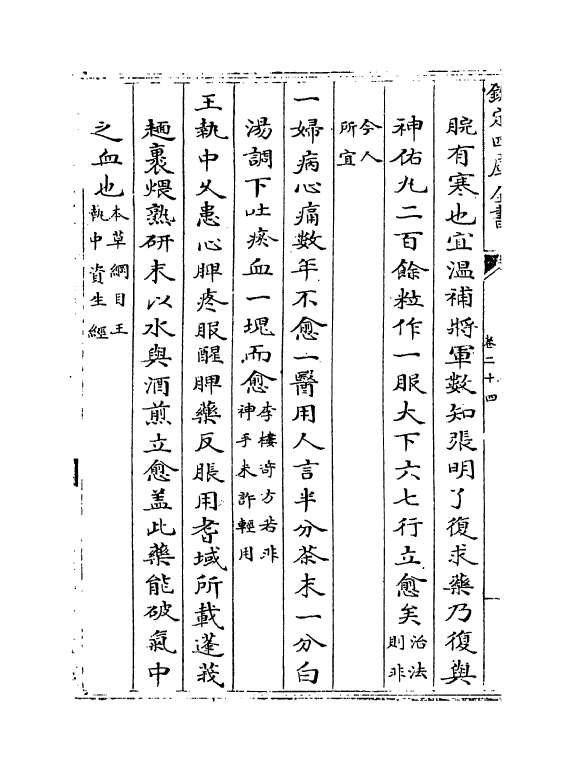 欽定四庫全書
卷二十四
脘有寒也宜溫補將軍數知張明了復求藥乃復與
神佑丸二百餘粒作一服大下六七行立愈矣治法則非
今人所宜
一婦病心痛數年不愈一醫用人言半分茶末一分白
湯調下吐瘀血一塊而愈李樓竒方若非神手未許輕用
王執中乆患心脾疼服醒脾藥反脹用耆域所載蓬莪
麵裹煨熟研末以水與酒煎立愈蓋此藥能破氣中
之血也本草綱目王執中資生經